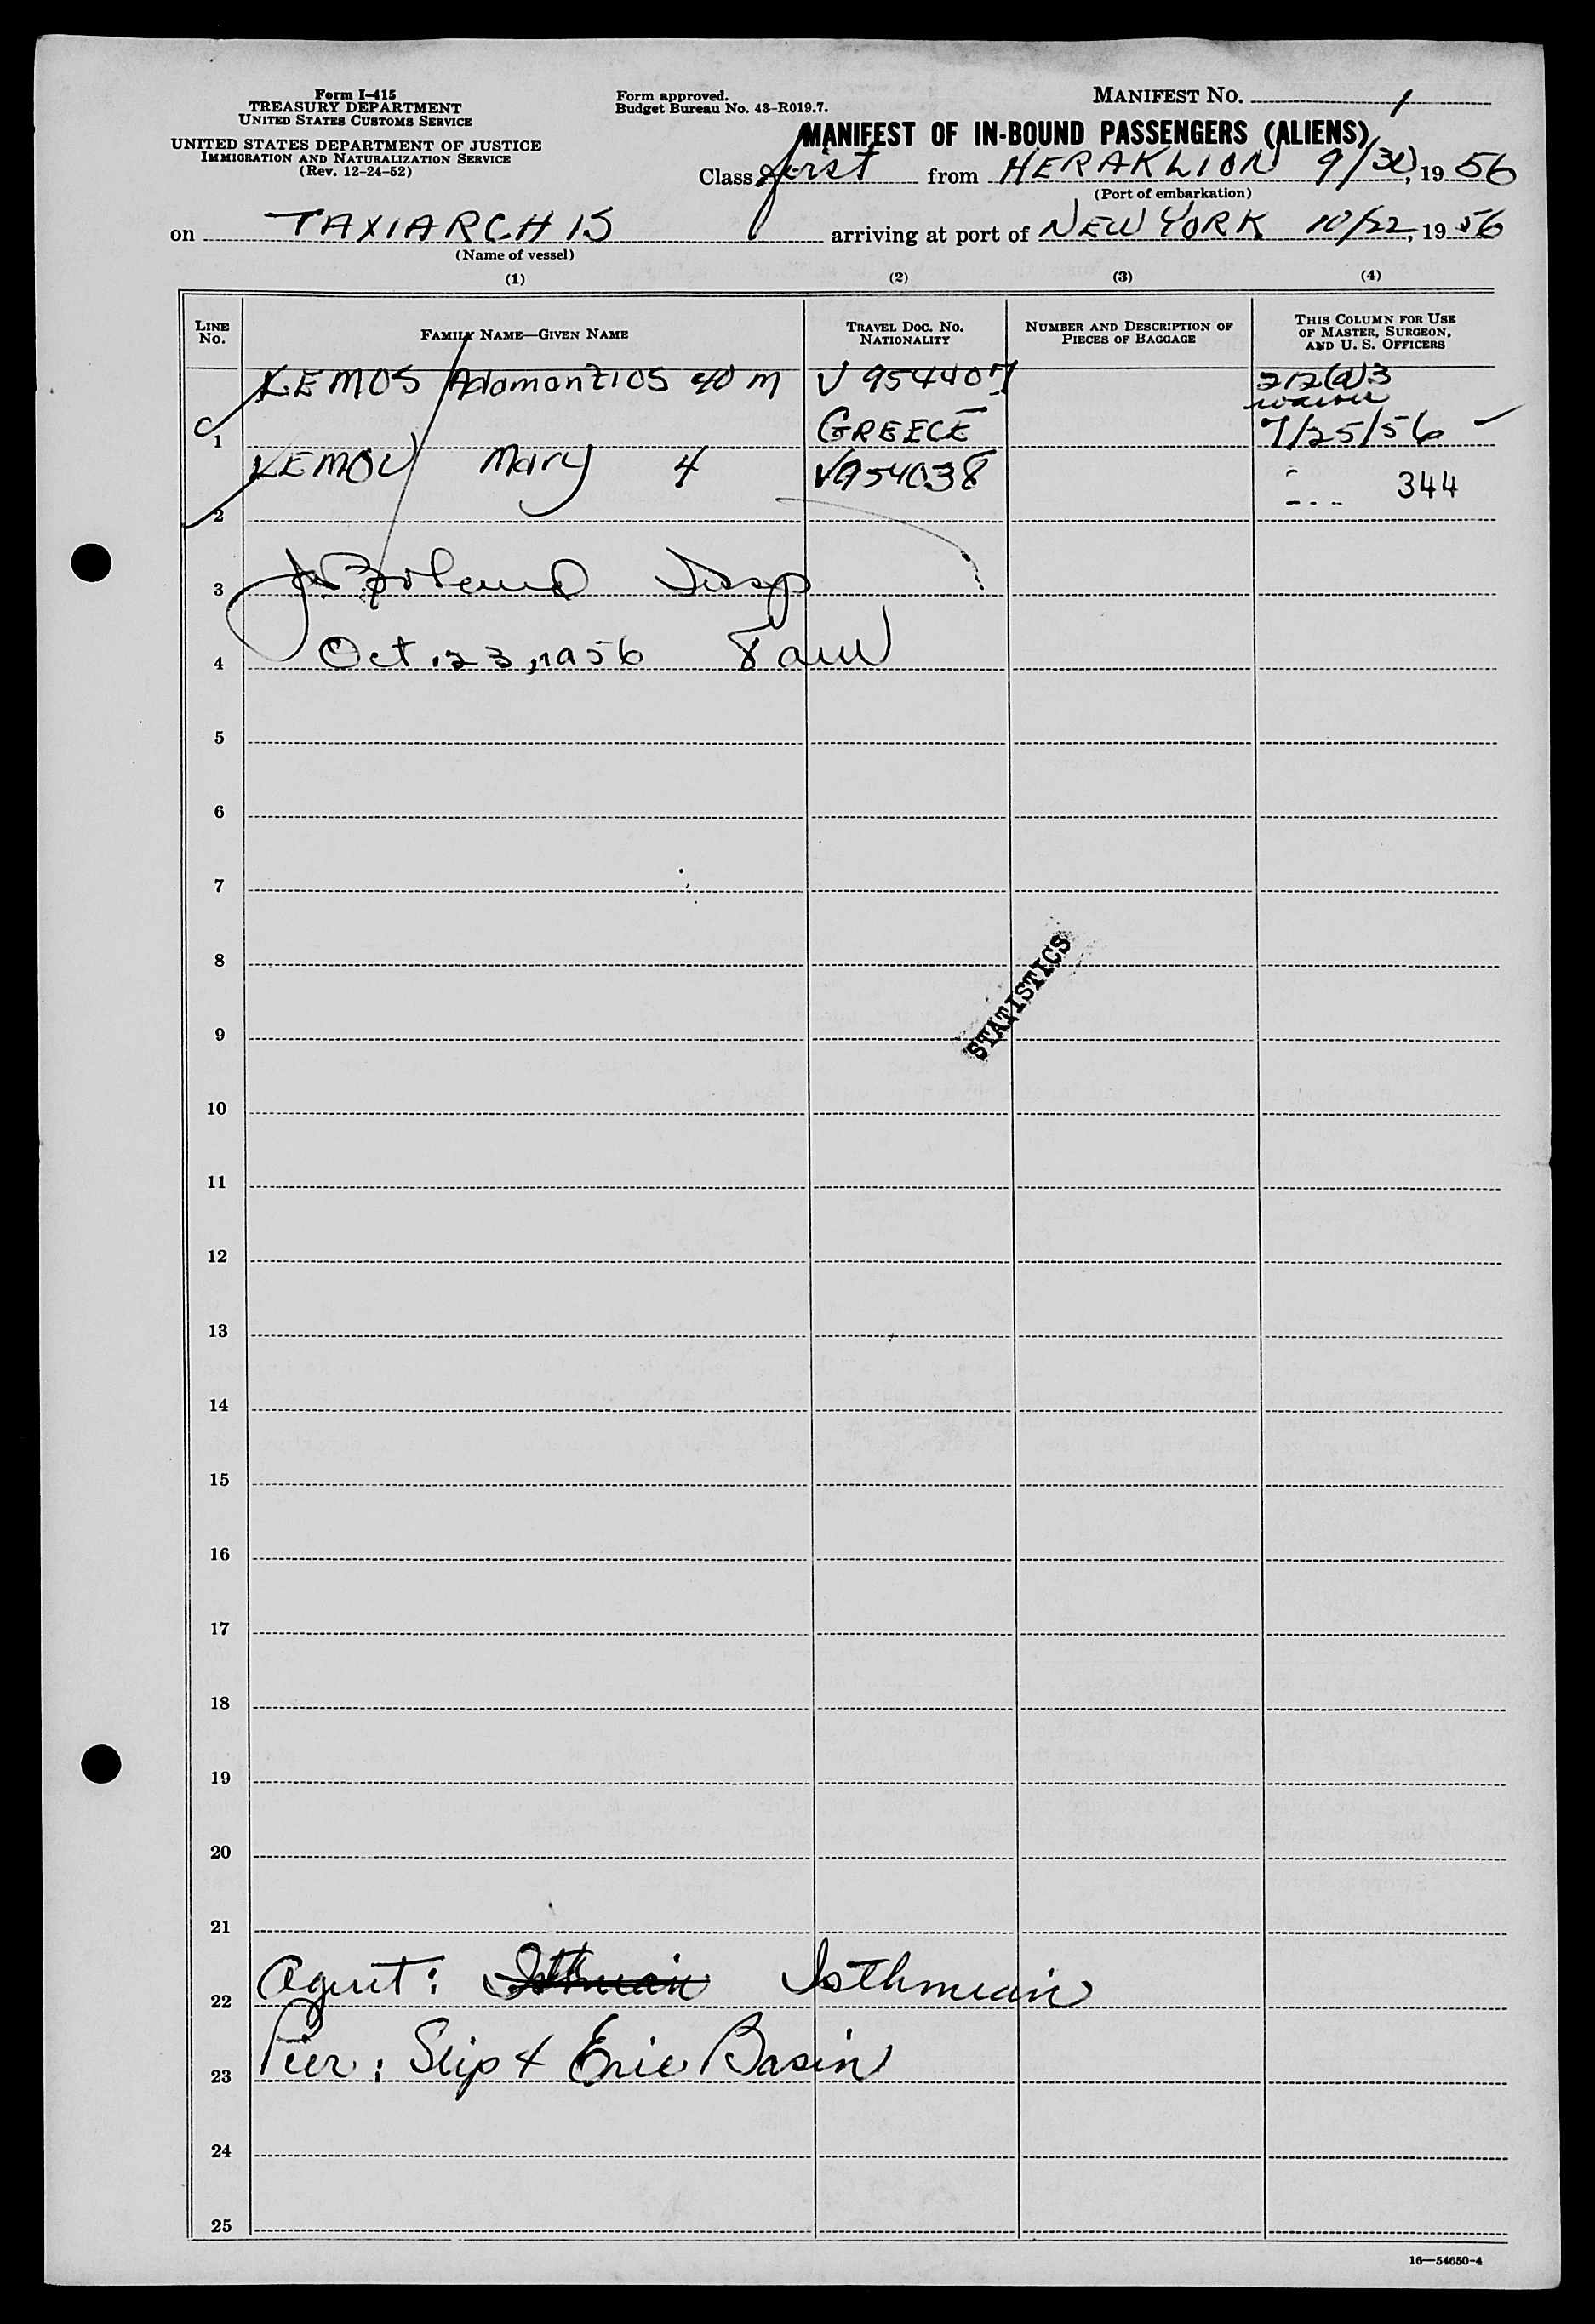 Form I-415
TREASURY DEPARTMENT
UNITED STATES CUSTOMS SERVICE
UNITED STATES DEPARTMENT OF JUSTICE
IMMIGRATION AND NATURALIZATION SERVICE
(Rev. 12-24-52)
Form approved.
Budget Bureau No. 43-R019.7.
MANIFEST NO. 1
MANIFEST OF IN-BOUND PASSENGERS (ALIENS)
Class first from HERAKLION 9/30, 1956
(Port of embarkation)
on TAXIARCHIS arriving at port of NEW YORK 10/22, 1956
(Name of vessel)
(1) (2) (3) (4)
LINE No. FAMILY NAME—GIVEN NAME TRAVEL DOC. NO. NATIONALITY NUMBER AND DESCRIPTION OF PIECES OF BAGGAGE THIS COLUMN FOR USE OF MASTER, SURGEON, AND U. S. OFFICERS
LEMOS Adamantios 40 m V954407 212(d)3
waiver
1 GREECE 7/25/56
LEMOU Mary 4 V954038 344
2
3 Insp
4 Oct. 23, 1956 8 am
5
6
7
8
STATISTICS
9
10
11
12
13
14
15
16
17
18
19
20
21
22 Agent: Isthmian
23 Pier: Slip 4 Erie Basin
24
25
16—54650-4